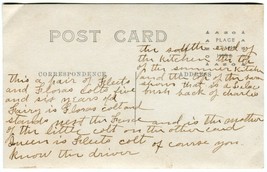 POST CARD
PLACE
CORRESPONDENCE
ADDRESS
this a pair of Fleets
and Floras colts five
and six years old
Fairy is Floras colt and
stands next the fence and is the mother
of the little colt on the other card
Queen is Fleets colt of course you
know the driver
the south of
the kitchen the top
of the summer kitchen
and the top of the barn
shows that is a lilac
bush back of charlie